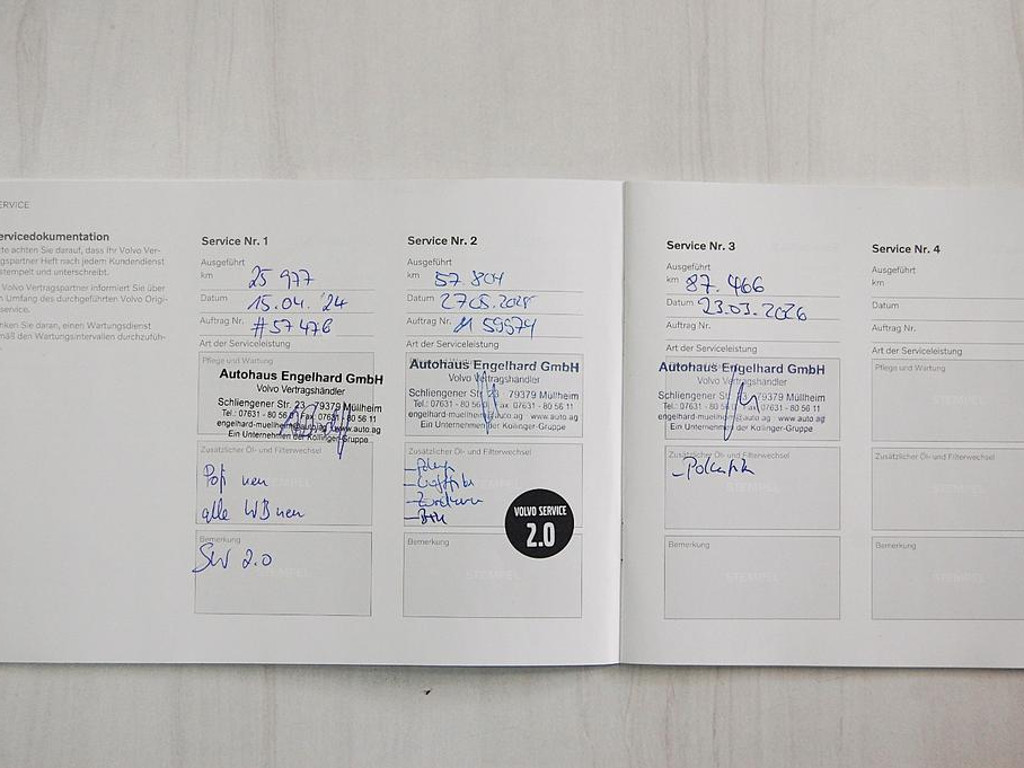 ERVICE
ervicedokumentation
te achten Sie darauf, dass Ihr Volvo Ver-
gspartner Heft nach jedem Kundendienst
stempelt und unterschreibt.
Volvo Vertragspartner informiert Sie über
n Umfang des durchgeführten Volvo Origi-
service.
nken Sie daran, einen Wartungsdienst
mäß den Wartungsintervallen durchzufüh-
Service Nr. 1
Ausgeführt
km 25 977
Datum 15.04. '24
Auftrag Nr. #57476
Art der Serviceleistung
Pflege und Wartung
Autohaus Engelhard GmbH
Volvo Vertragshändler
Schliengener Str. 23 79379 Müllheim
Tel.: 07631 - 80 56 Fax 07631 80 56 11
engelhard-muellheim@auto.ag www.auto.ag
Ein Unternehmen der Kollinger-Gruppe
Zusätzlicher Öl- und Filterwechsel
neu
alle WB neu
Bemerkung
2.0
Service Nr. 2
Ausgeführt
km 57.804
Datum
Auftrag Nr. 59974
Art der Serviceleistung
Autohaus Engelhard GmbH
Volvo Vertragshändler
Schliengener Str. 23 79379 Müllheim
Tel.: 07631 - 80 56 Fax 07631 - 80 56 11
engelhard-muellheim@auto.ag www.auto.ag
Ein Unternehmen der Kollinger-Gruppe
Zusätzlicher Öl- und Filterwechsel
VOLVO SERVICE
2.0
Bemerkung
Service Nr. 3
Ausgeführt
km 87.466
Datum 23.03.2026
Auftrag Nr.
Art der Serviceleistung
Autohaus Engelhard GmbH
Volvo Vertragshändler
Schliengener Str. 79379 Müllheim
Tel.: 07631 - 80 56 Fax 07631 - 80 56 11
engelhard-muellheim@auto.ag www.auto.ag
Ein Unternehmen der Kollinger-Gruppe
Zusätzlicher Öl- und Filterwechsel
Bemerkung
STEMPEL
Service Nr. 4
Ausgeführt
km
Datum
Auftrag Nr.
Art der Serviceleistung
Pflege und Wartung
Zusätzlicher Öl- und Filterwechsel
Bemerkung